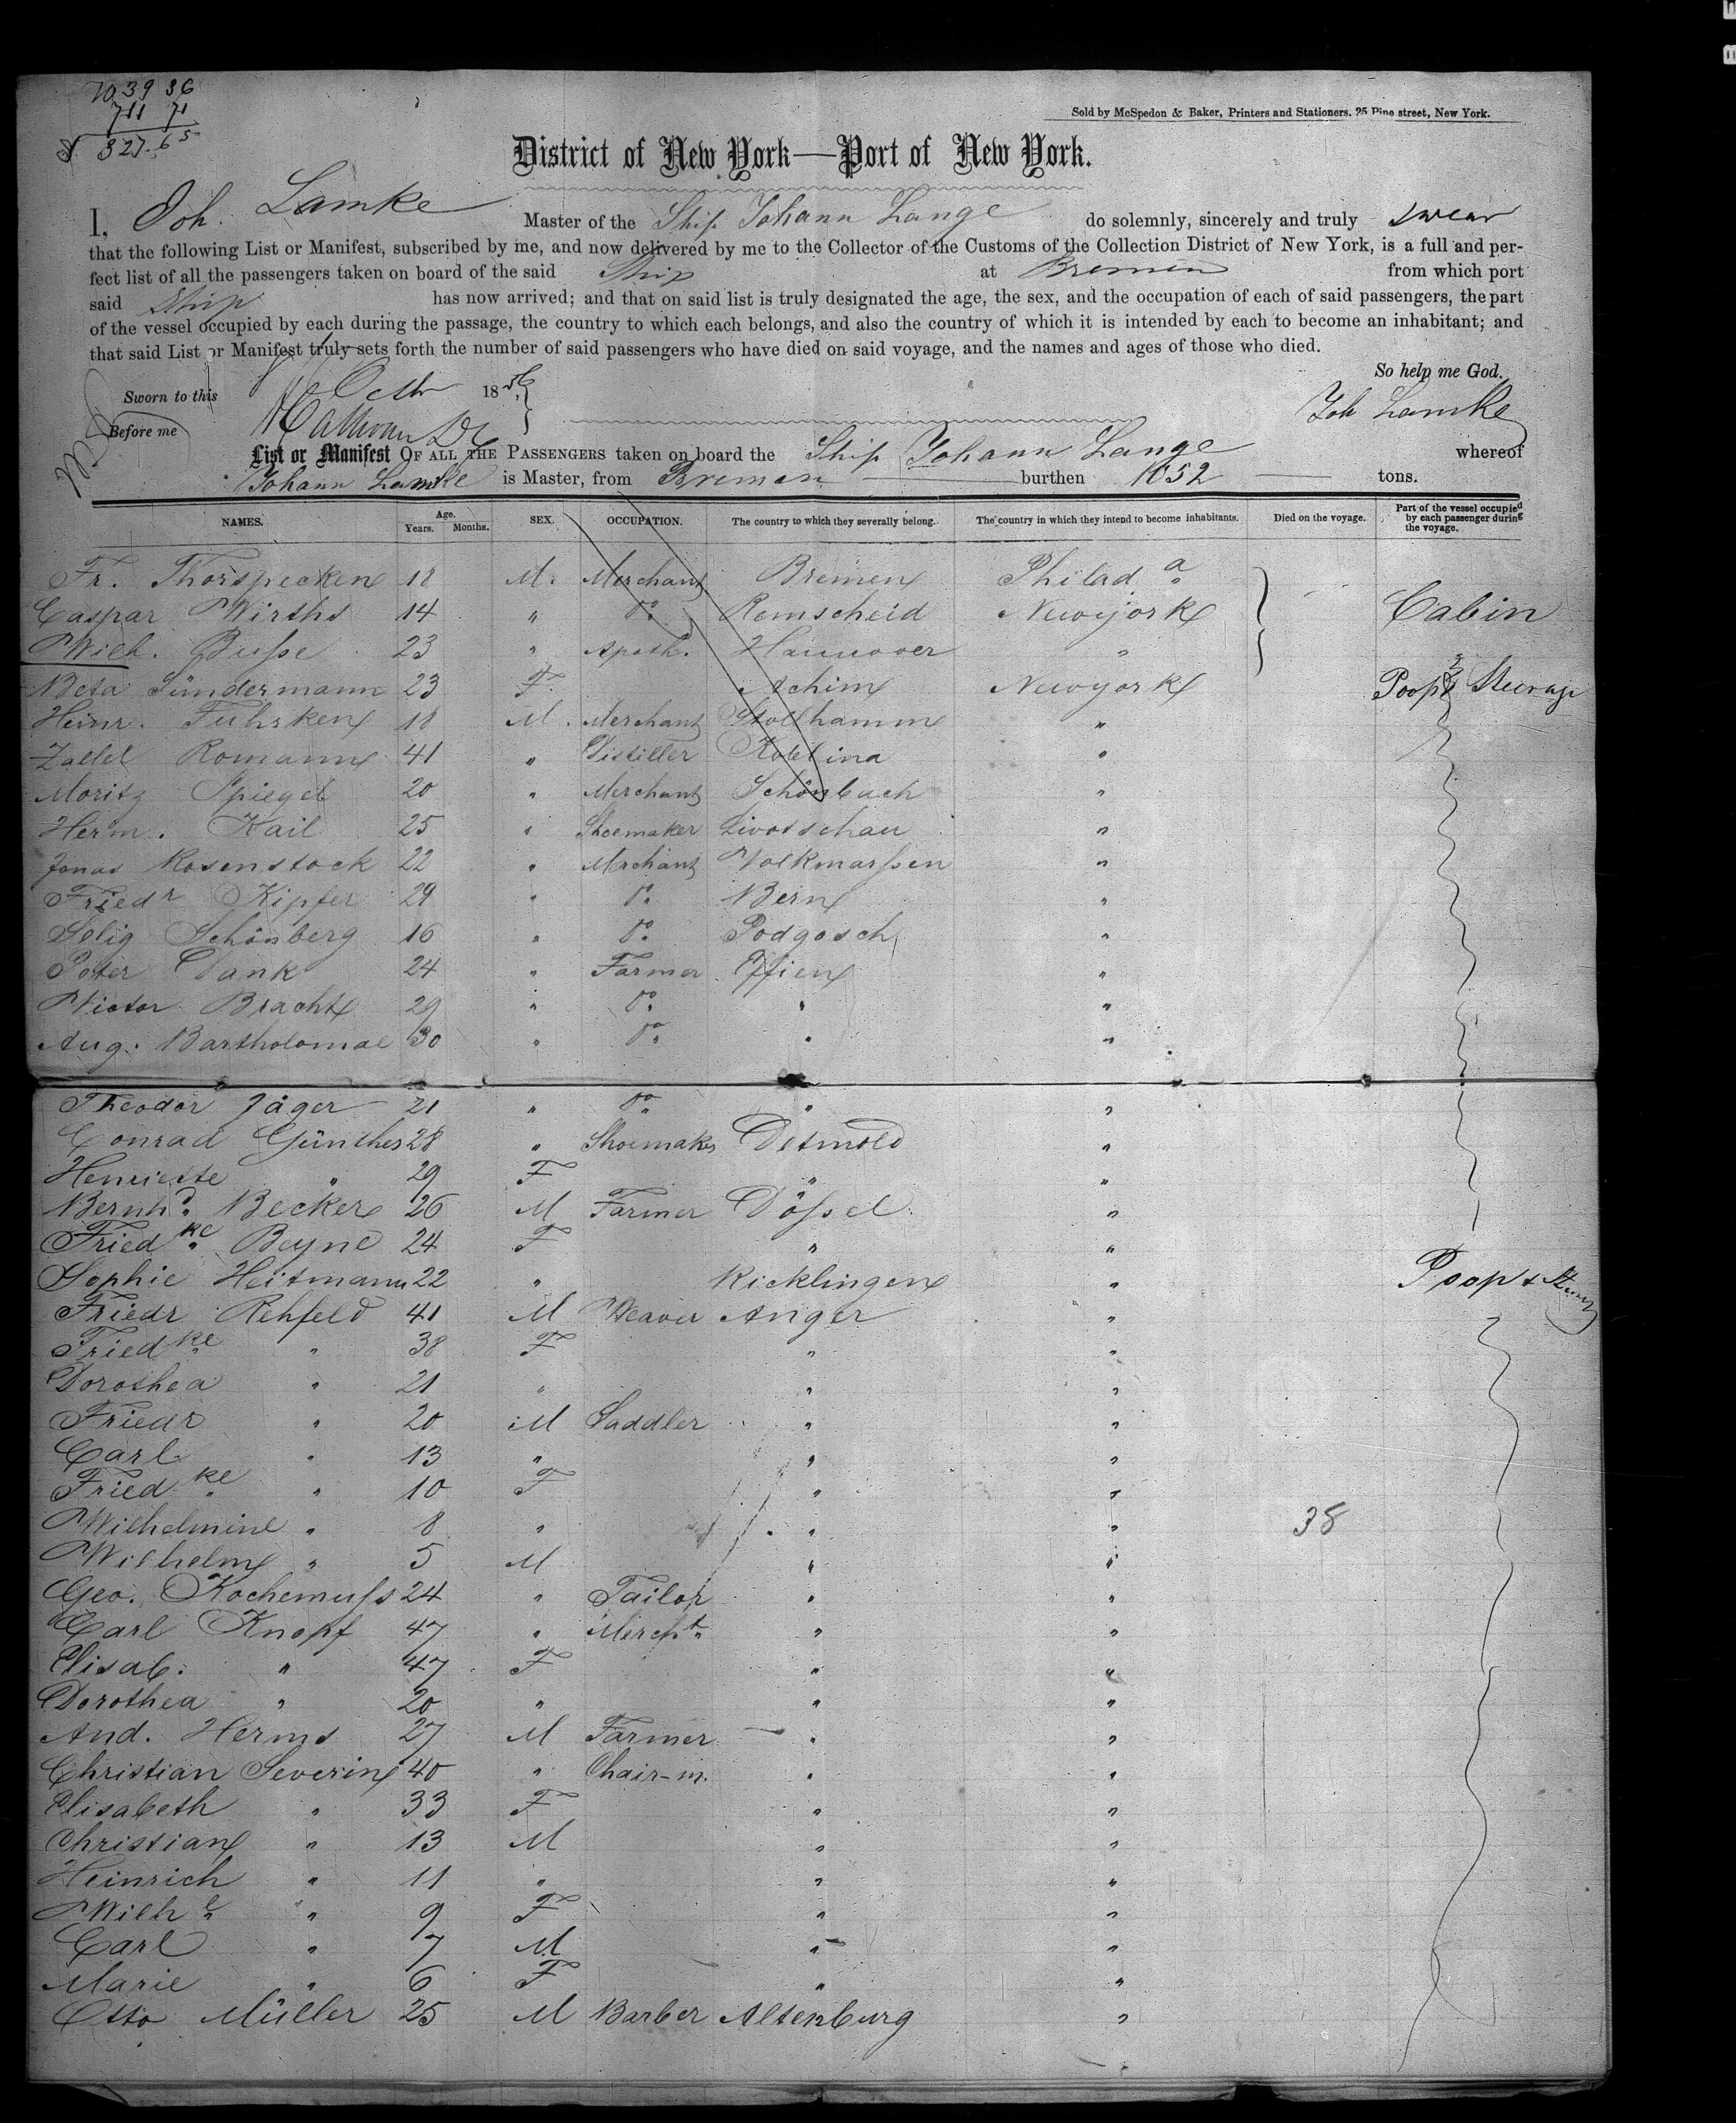 1039 36
711 71
327.65
Sold by McSpedon & Baker, Printers and Stationers, 25 Pine street, New York.
District of New York—Port of New York.
I, Joh. Lamke Master of the Ship Johann Lange do solemnly, sincerely and truly swear
that the following List or Manifest, subscribed by me, and now delivered by me to the Collector of the Customs of the Collection District of New York, is a full and per-
fect list of all the passengers taken on board of the said Ship at Bremen from which port
said Ship has now arrived; and that on said list is truly designated the age, the sex, and the occupation of each of said passengers, the part
of the vessel occupied by each during the passage, the country to which each belongs, and also the country of which it is intended by each to become an inhabitant; and
that said List or Manifest truly sets forth the number of said passengers who have died on said voyage, and the names and ages of those who died.
So help me God.
Sworn to this Octr 1856
Joh Lamke
Before me
List or Manifest OF ALL THE PASSENGERS taken on board the Ship Johann Lange whereof
Johann Lamke is Master, from Bremen burthen 1052 tons.
NAMES. Age. Years. Months. SEX. OCCUPATION. The country to which they severally belong. The country in which they intend to become inhabitants. Died on the voyage. Part of the vessel occupied by each passenger during the voyage.
Fr. Thorspecken 18 M. Merchant Bremen Philad.a
Caspar Wirths 14 " Do. Remscheid Newyork Cabin
Wilh. Buße 23 " Apoth. Hannover "
Beta Sündermann 23 F. Achim Newyork Poop & Steerage
Heinr. Fuhrken 18 M. Merchant Stollhamm "
Zallel Romann 41 " Distiller Koblina "
Moritz Spiegel 20 " Merchant Schönbach "
Herm. Kail 25 " Shoemaker Livotschau "
Jonas Rosenstock 22 " Merchant Volkmarßen "
Friedr Kipfer 29 " Do. Bern "
Selig Schönberg 16 " Do. Podgosch "
Peter Dank 24 " Farmer "
Victor Bracht 29 " Do. " "
Aug. Bartholomae 30 " Do. " "
Theodor Jäger 21 " Do. " "
Conrad Günther 28 " Shoemaker Detmold "
Henriette " 29 F " "
Bernhd. Becker 26 M Farmer Dößel "
Friedke. Beyne 24 F " "
Sophie Heitmann 22 " Ricklingen " Poop &
Friedr Rehfeld 41 M Weaver Anger "
Friedke " 38 F " "
Dorothea " 21 " " "
Friedr " 20 M Saddler " "
Carl " 13 " " "
Friedke " 10 F " "
Wilhelmine " 8 " " " 38
Wilhelm " 5 M " "
Geo. Kochemuß 24 " Tailor " "
Carl Knopf 47 " Mercht. " "
Elisab. " 47 F " "
Dorothea " 20 " " "
And. Herms 27 M Farmer " "
Christian Severin 40 " Chair-m. " "
Elisabeth " 33 F " "
Christian " 13 M " "
Heinrich " 11 " " "
Wilhe " 9 F " "
Carl " 7 M " "
Marie " 6 F " "
Otto Müller 25 M Barber Altenburg "